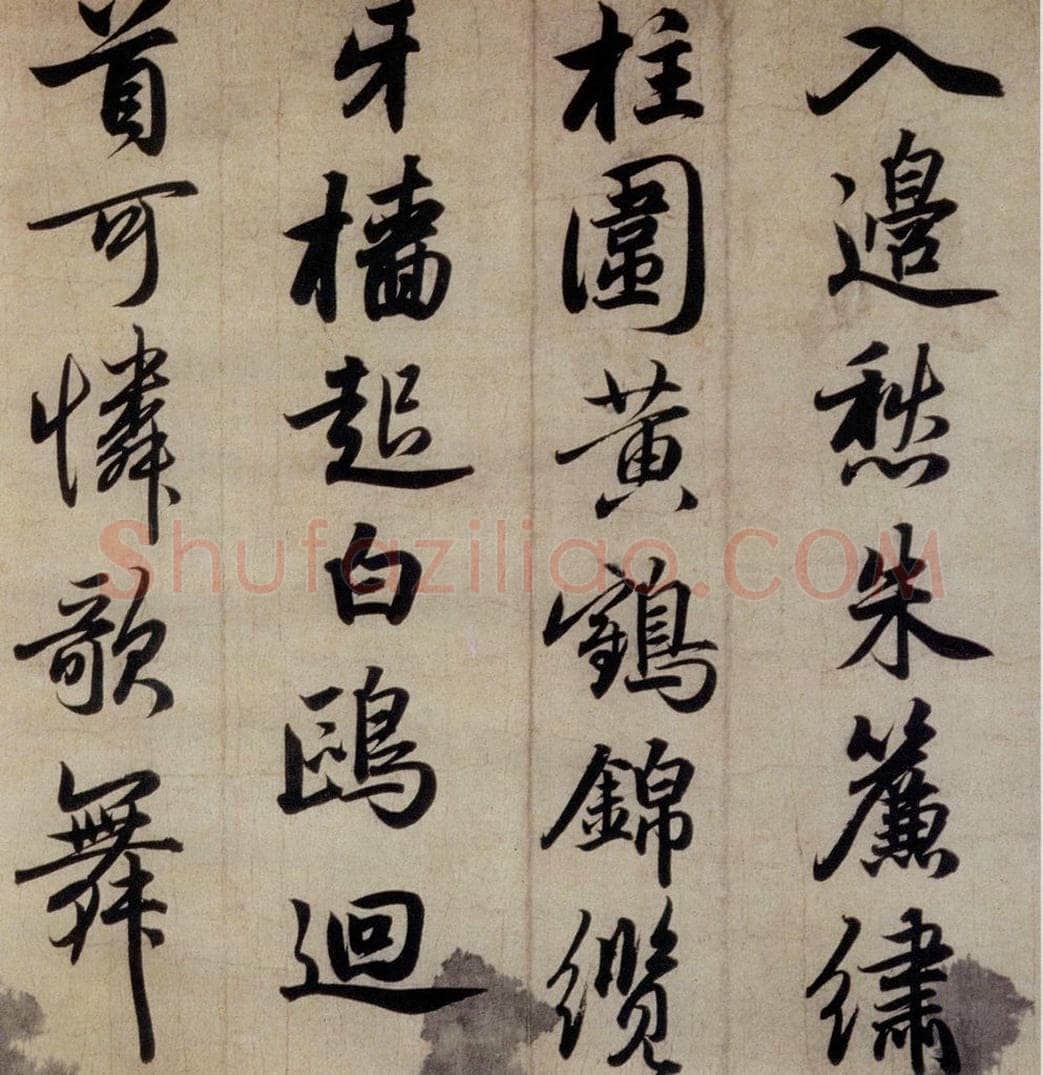 入邊愁朱簾繡
柱圍黃鶴錦纜
牙檣起白鷗迴
首可憐歌舞
Shufaziliao.COM